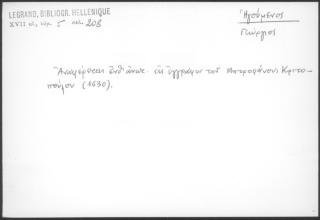 LEGRAND, BIBLIOGR. HELLENIQUE
XVII αἰ, τόμ. 5 σελ. 208
Ἡγούμενος
Γεώργιος
Ἀναφέρεται ἐνθ' ἀνωτ. εἰς ἔγγραφον τοῦ Μητροφάνους Κριτο-
πούλου (1630).